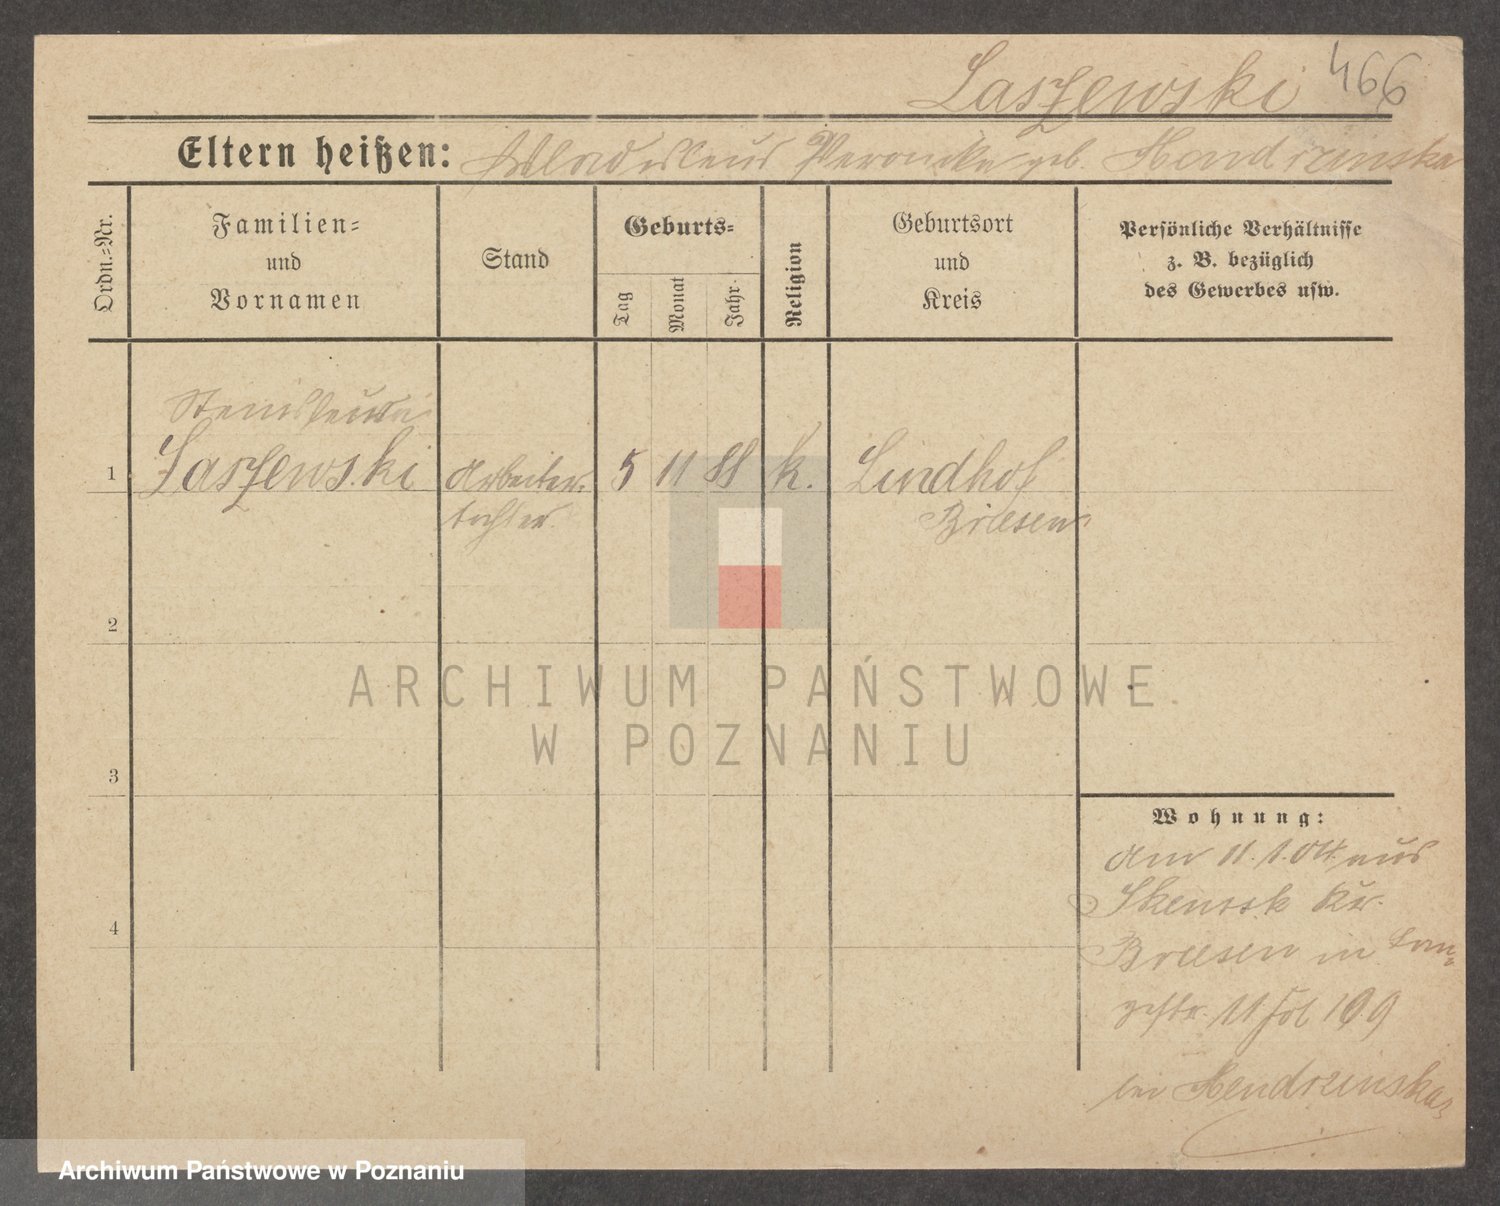 Laszewski 466
Eltern heißen: Wladislaus Veronika geb. Hendrzinska
Ordn.=Nr.
Familien=
und
Vornamen
Stand
Geburts=
Tag
Monat
Jahr
Religion
Geburtsort
und
Kreis
Persönliche Verhältnisse
z. B. bezüglich
des Gewerbes usw.
1 Laszewski Arbeiter= 5 11 88 k. Lindhof
tochter Briesen
2
3
4
Wohnung:
am 11.1.04 aus
Kr.
Briesen in Lan=
gestr. 11
bei Hendrzinska
ARCHIWUM PAŃSTWOWE
W POZNANIU
Archiwum Państwowe w Poznaniu